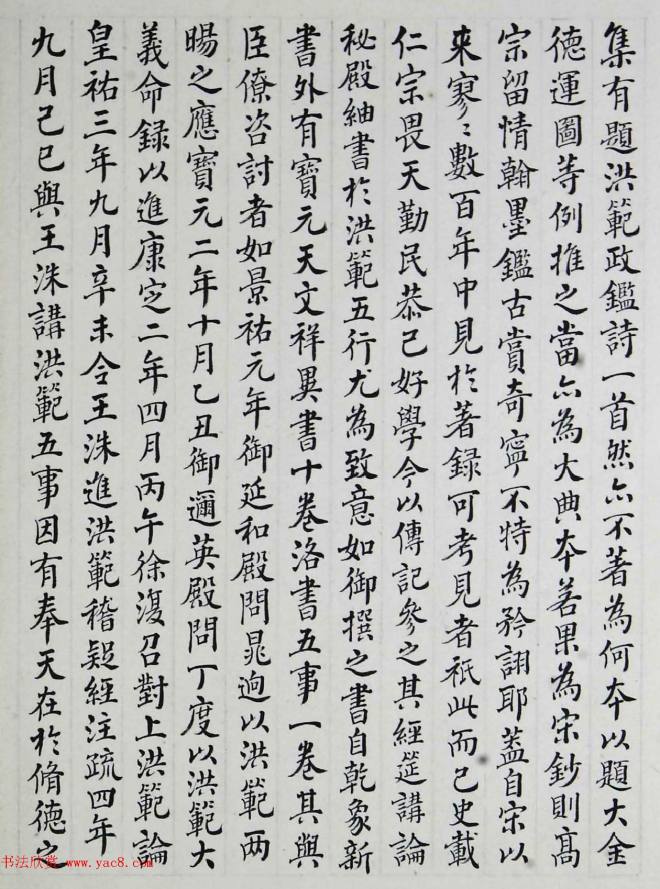 集有題洪範政鑑詩一首然亦不著為何本以題大金
德運圖等例推之當亦為大典本若果為宋鈔則髙
宗留情翰墨鑑古賞奇寧不特為矜詡耶蓋自宋以
来寥〻數百年中見於著録可考見者祇此而已史載
仁宗畏天勤民恭己好學今以傳記參之其經筵講論
秘殿紬書於洪範五行尤為致意如御撰之書自乾象新
書外有寶元天文祥異書十卷洛書五事一卷其與
臣僚咨討者如景祐元年御延和殿問晁迥以洪範两
暘之應寶元二年十月乙丑御邇英殿問丁度以洪範大
義命録以進康定二年四月丙午徐復召對上洪範論
皇祐三年九月辛未令王洙進洪範稽疑經注疏四年
九月己巳與王洙講洪範五事因有奉天在於脩德之
书法欣赏 www.yac8.com